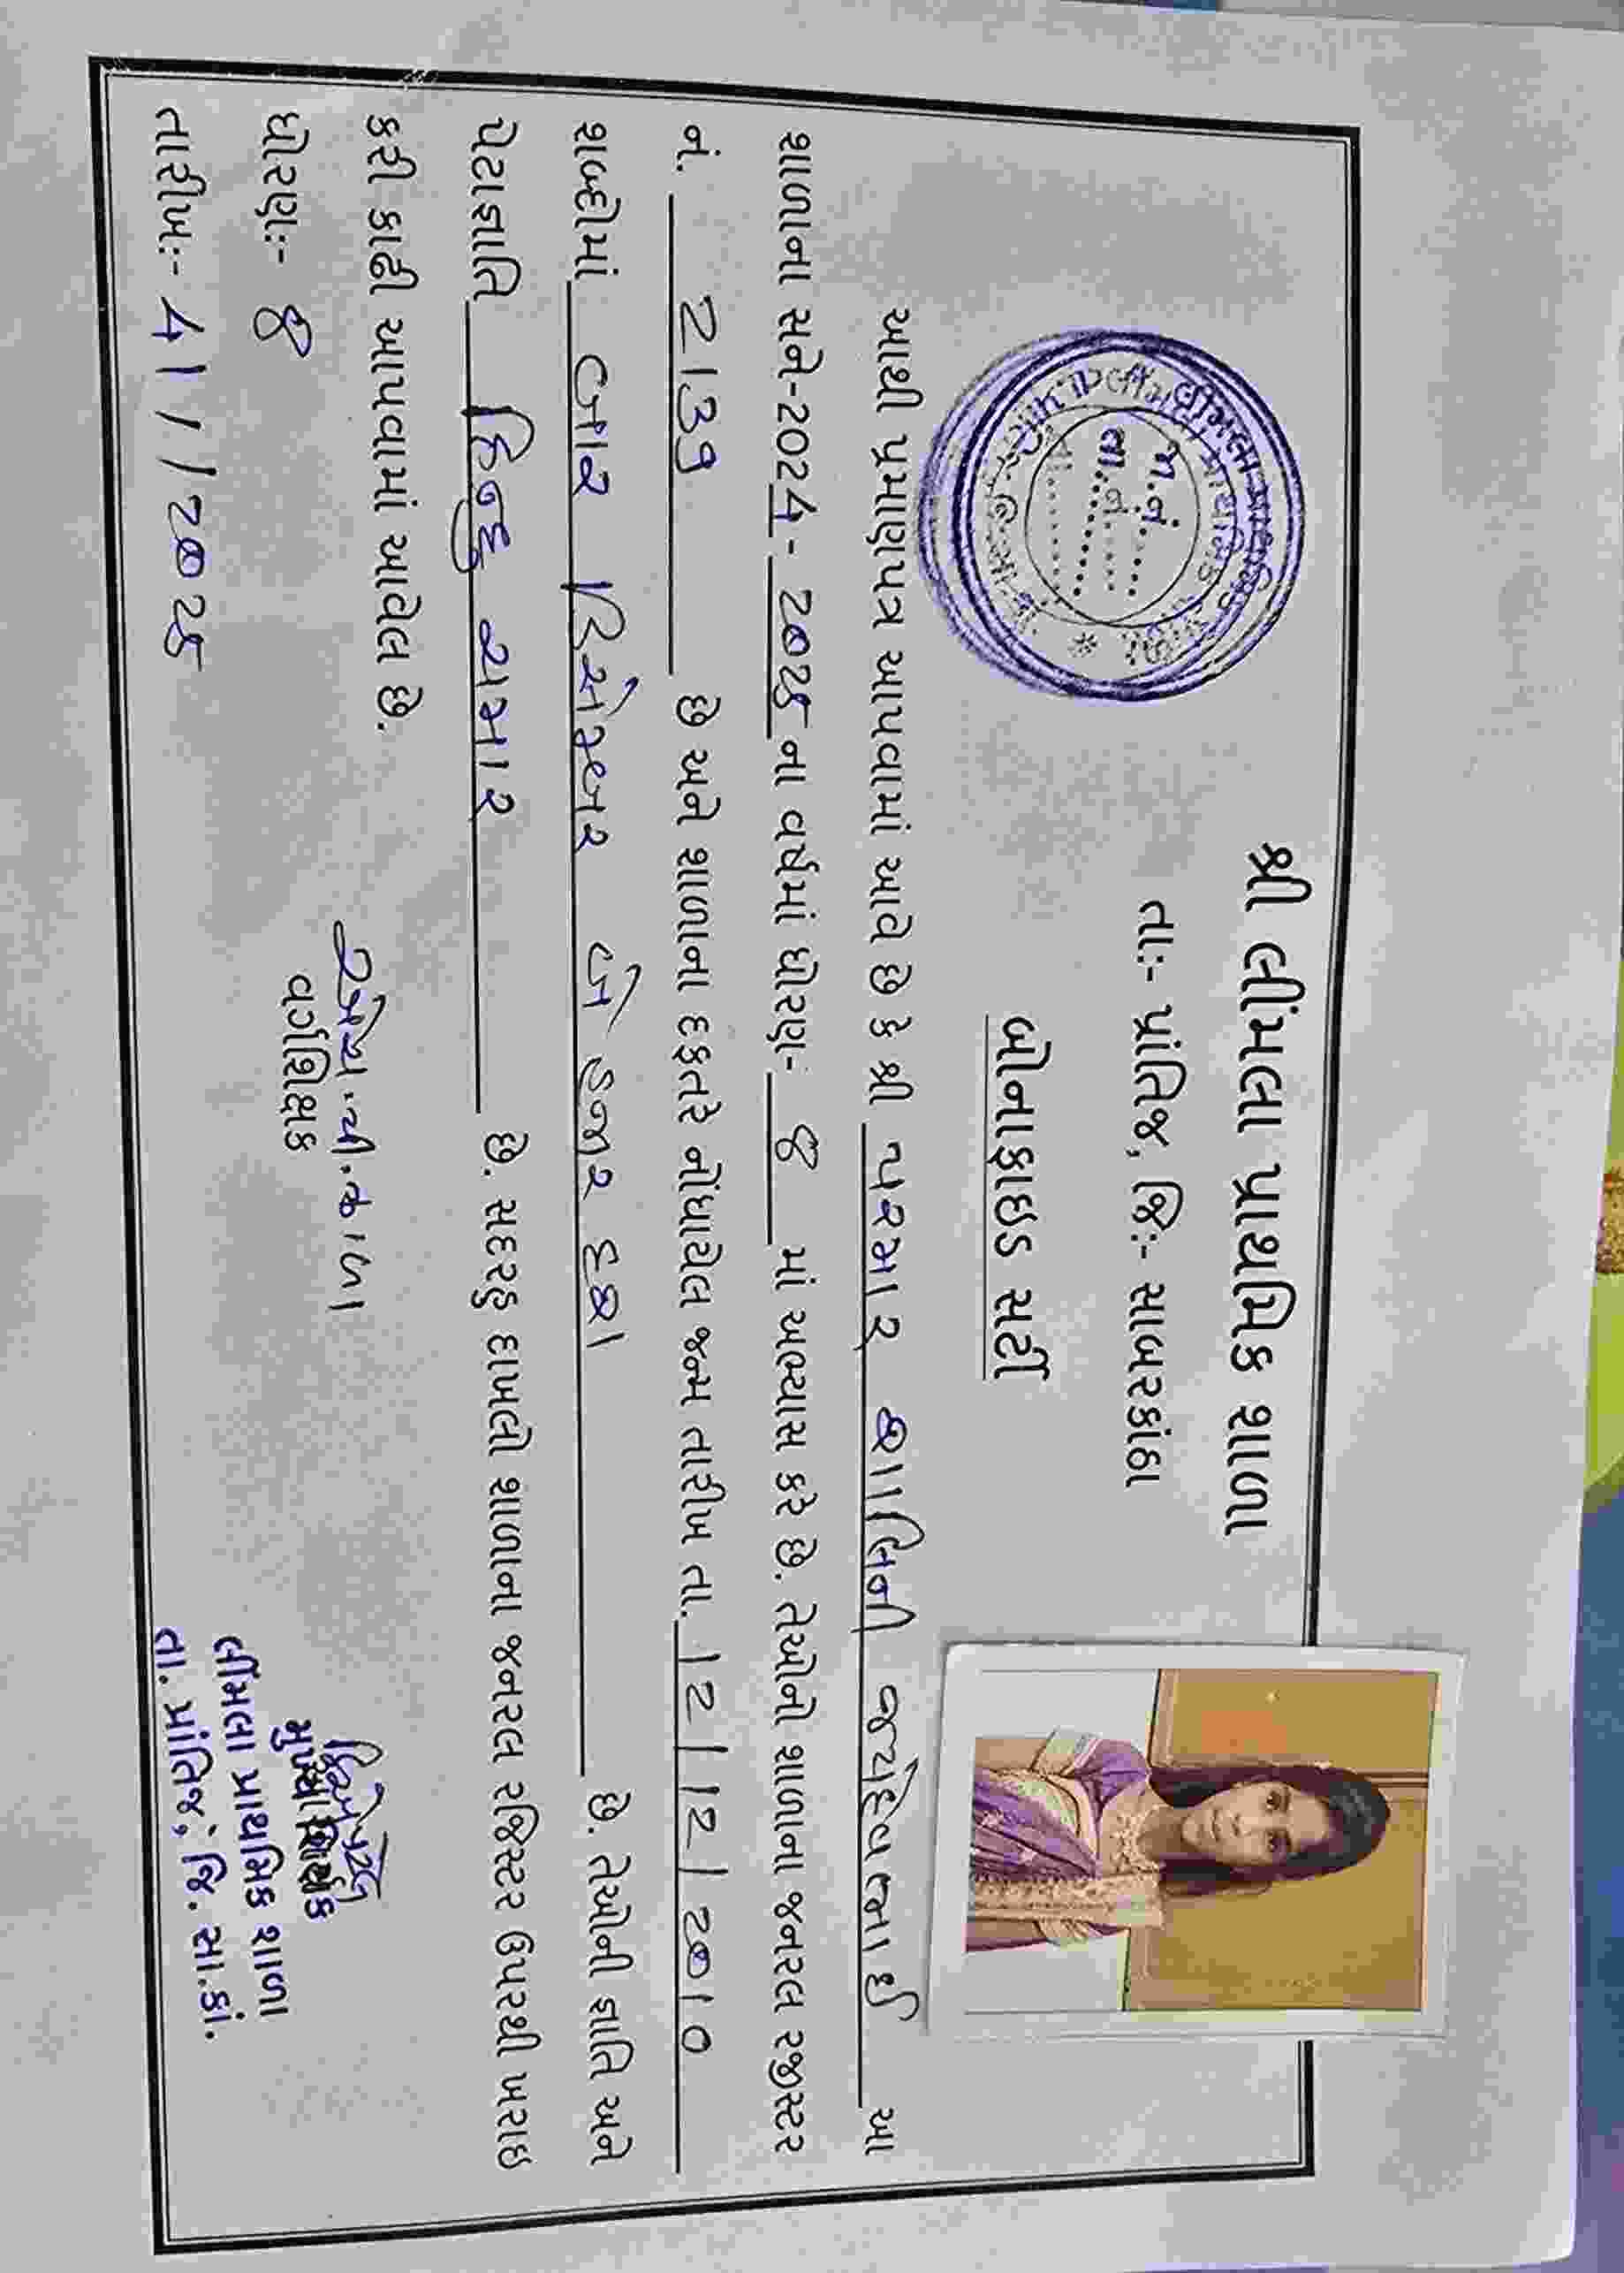 શ્રી લીંમલા પ્રાથમિક શાળા
તાઃ- પ્રાંતિજ, જિઃ- સાબરકાંઠા
બોનાફાઇડ સર્ટી
આથી પ્રમાણપત્ર આપવામાં આવે છે કે શ્રી પરમાર જયદેવભાઈ આ
શાળાના સને-2024- 2025 ના વર્ષમાં ધોરણઃ- ૪ માં અભ્યાસ કરે છે. તેઓનો શાળાના જનરલ રજીસ્ટર
નં. 2139 છે અને શાળાના દફતરે નોંધાયેલ જન્મ તારીખ તા. 12/12/2010
શબ્દોમાં બાર ડિસેમ્બર બે હજાર દશ છે. તેઓની જ્ઞાતિ અને
પેટાજ્ઞાતિ હિન્દુ ચમાર છે. સદરહુ દાખલો શાળાના જનરલ રજિસ્ટર ઉપરથી ખરાઇ
કરી કાઢી આપવામાં આવેલ છે.
ધોરણઃ- ૪
વર્ગશિક્ષક
તારીખઃ- 4/1/2025
લીંમલા પ્રાથમિક શાળા
તા. પ્રાંતિજ, જિ. સા.કાં.